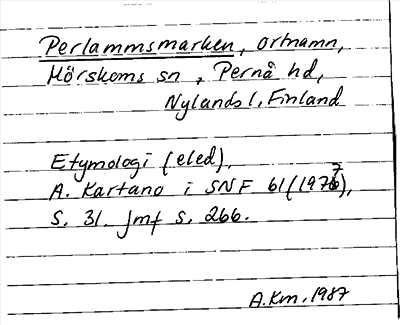 Perlammsmarken, ortnamn,
Mörskoms sn, Pernå hd,
Nylands l, Finland
Etymologi (eled).
A. Kartano i SNF 61 (1977),
S. 31. Jmf s. 266.
A.Km, 1987